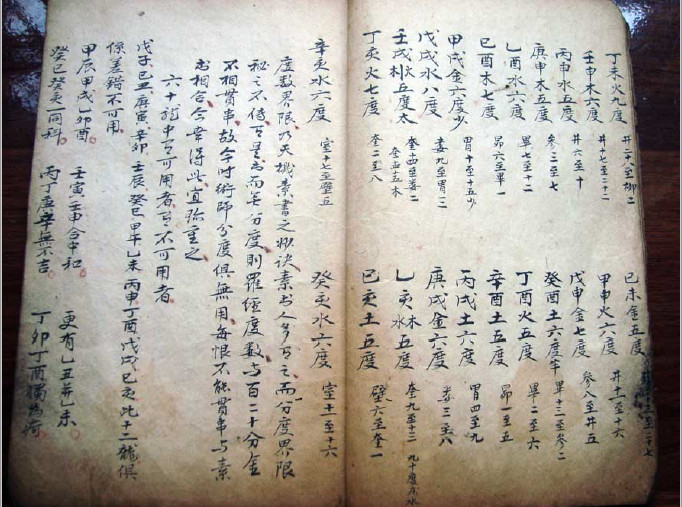 丁未火九度 井二十八至柳二 己未金五度
壬申木六度 井十七至二十二 甲申火六度 井十一至十六
丙申水五度 井六至十 戊申金七度 參八至井五
庚申木五度 參三至七 癸酉土六度 畢十三至參二
乙酉水六度 畢七至十二 丁酉火五度 畢二至六
己酉木七度 昴六至畢一 辛酉土五度 昴一至五
甲戌金六度少 胃十至十五少 丙戌土六度 胃四至九
戊戌水八度 婁九至胃三 庚戌金六度 婁三至八
壬戌 五度太 奎十四至婁二 乙亥 五度 奎九至十三
丁亥火七度 奎二至八 己亥土五度 壁六至奎一
辛亥水六度 室十七至壁五 癸亥水六度 室十一至十六
度數界限乃天機素書之妙訣素書人多有之而分度界限
秘之不傳有星書而無分度則羅經度數与百二十分金
不相貫串故今時術師分度俱無用每恨不能貫串与素
書相合今幸得此真珍重之
六十龍中有可用者有不可用者
戊子己丑庚寅辛卯壬辰癸巳甲午乙未丙申丁酉戊戌己亥此十二龍俱
係差錯不可用
甲辰甲戌一卯酉 壬寅壬申合中和 更有乙丑并乙未
癸巳癸亥一同科 丙丁庚辛無不吉 丁卯丁酉獨為奇